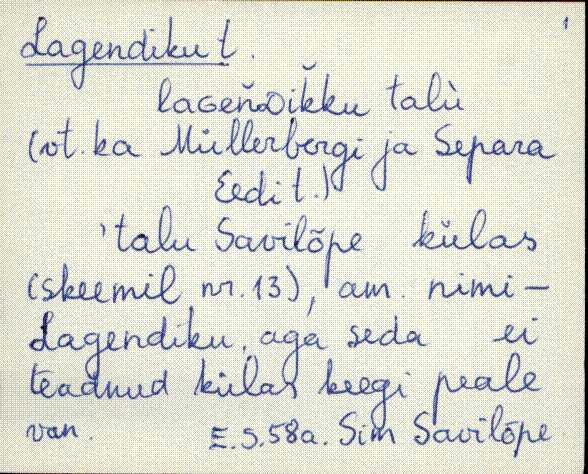 1
Lagendiku t.
laGeňDik̆ku talù
(vt. ka Müllerbergi ja Separa
Eedi t.)
'talu Savilõpe külas
(skeemil nr. 13), am. nimi –
Lagendiku, aga seda ei
teadnud külas keegi peale
van. E.S. 58a. Sim Savilõpe